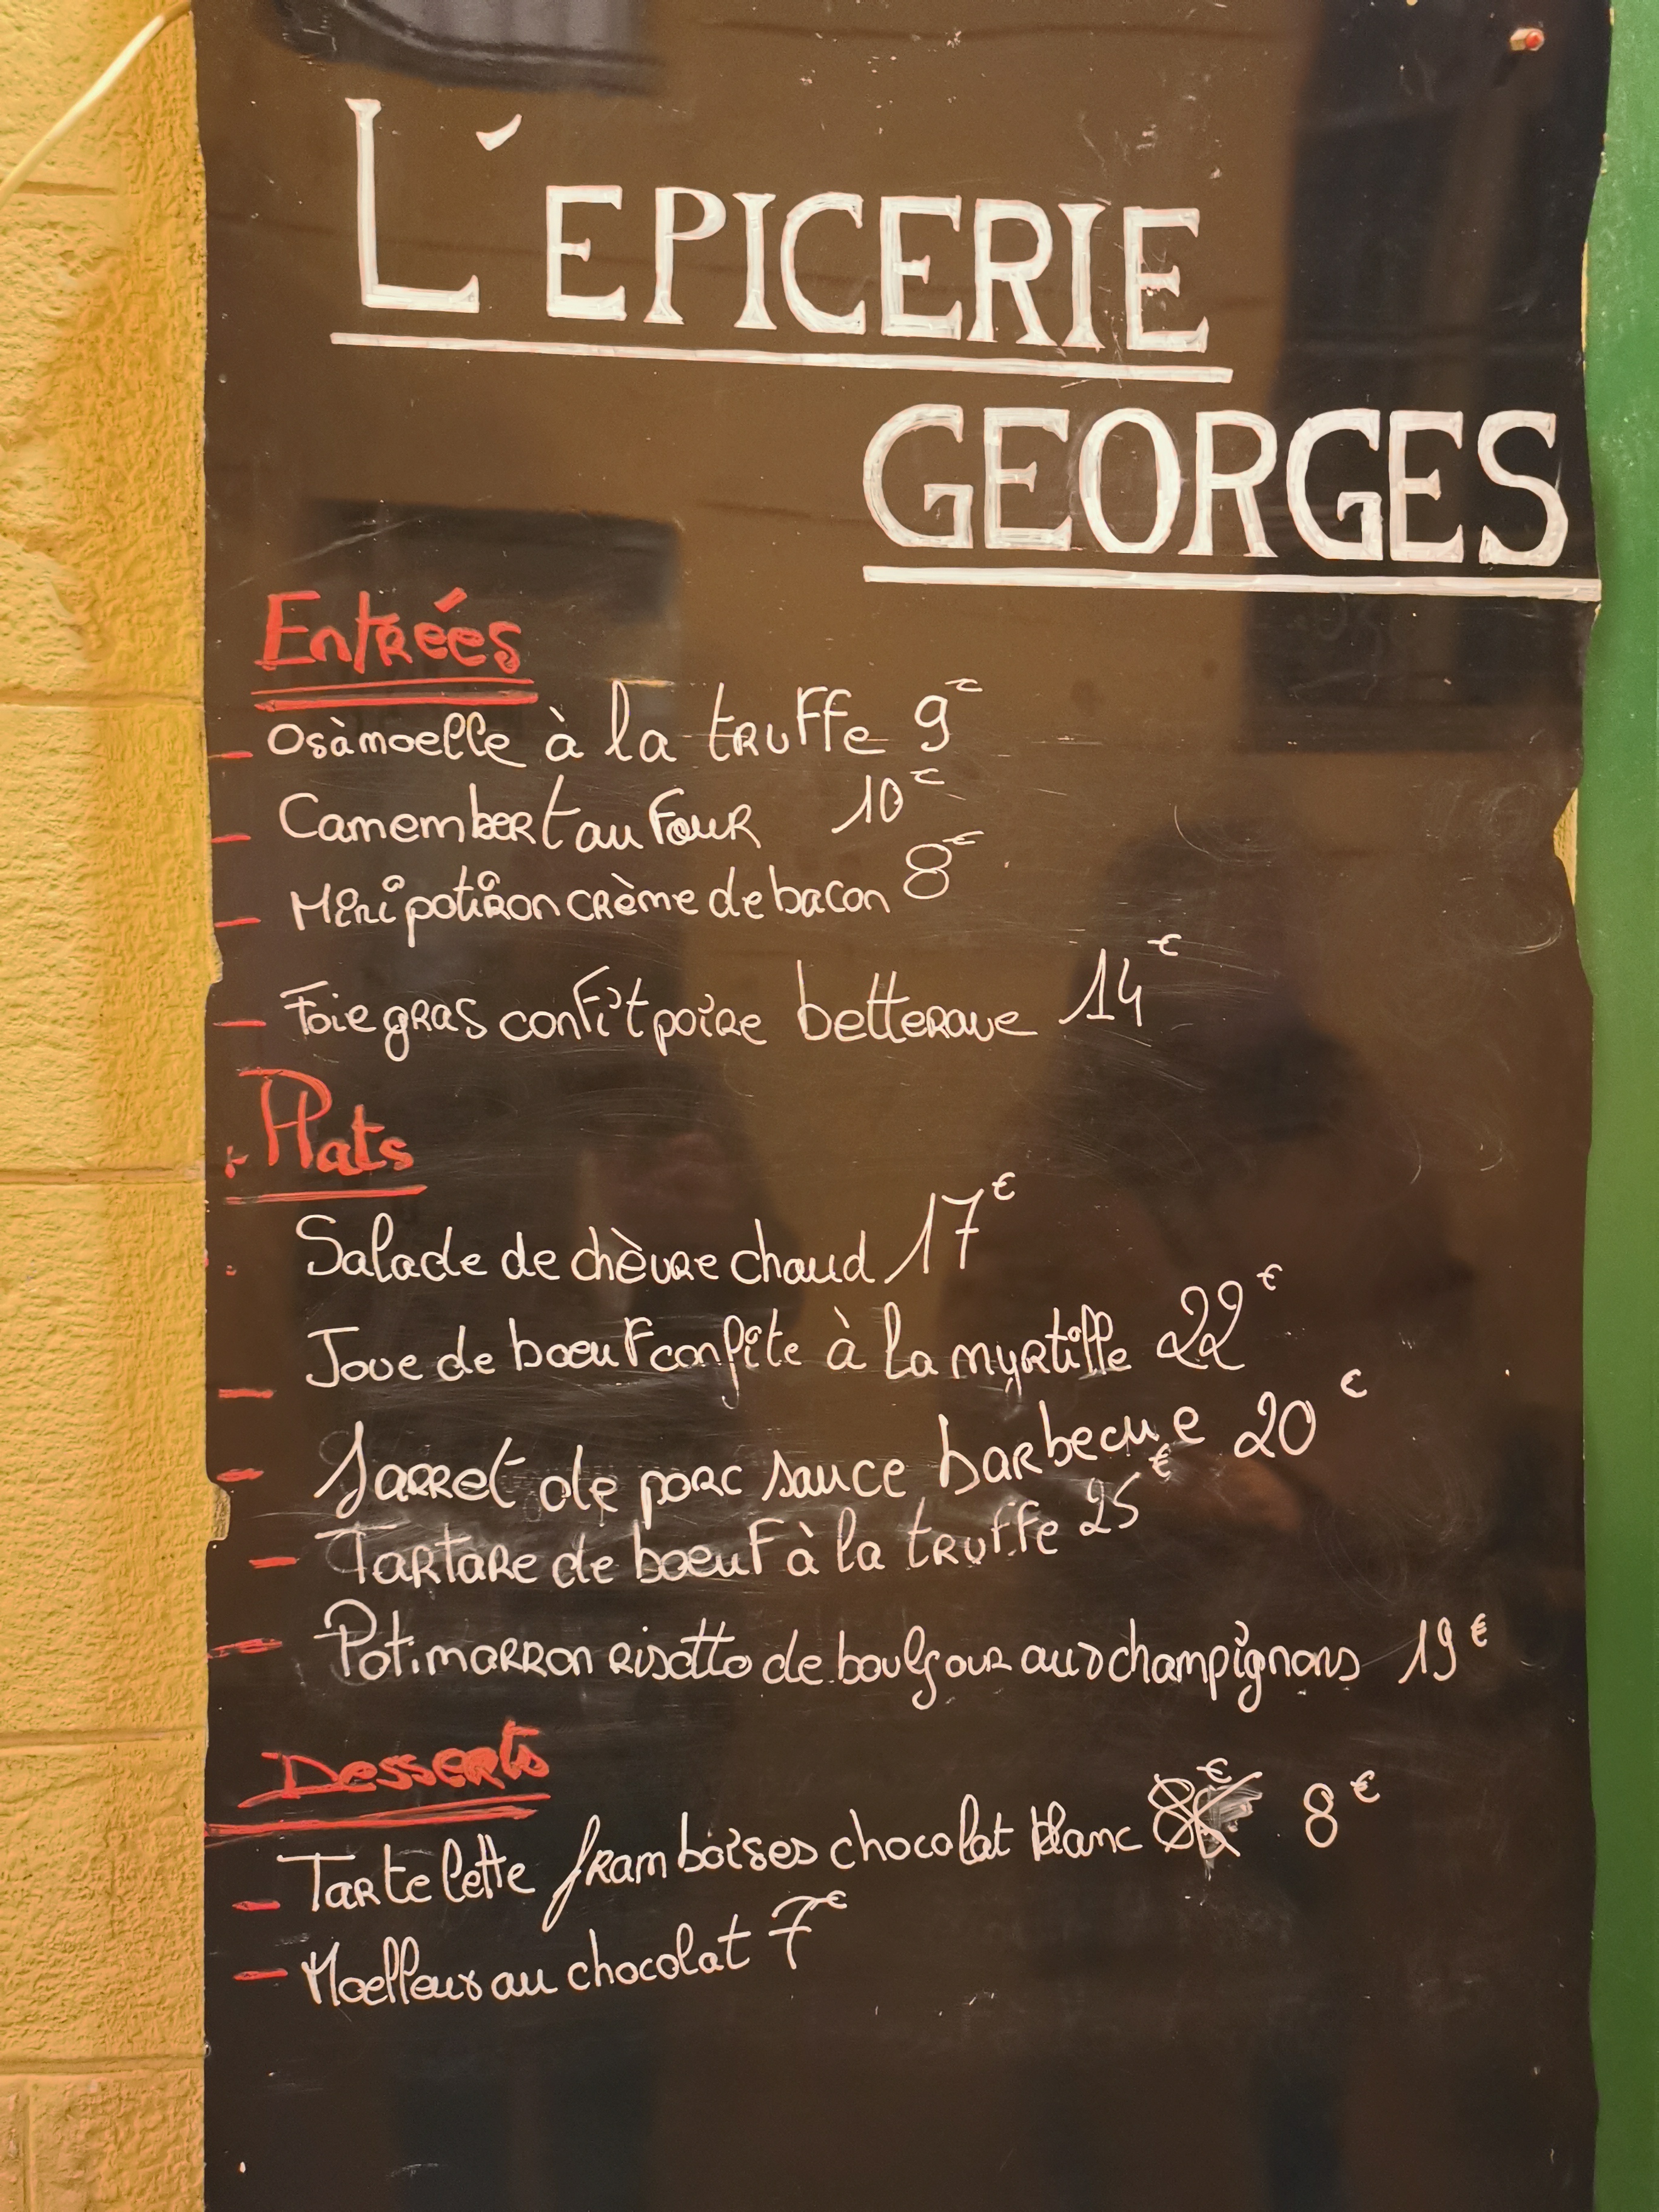 L'ÉPICERIE
GEORGES
Entrées
- Os à moelle à la truffe 9€
- Camembert au four 10€
- Mini potiron crème de bacon 8€
- Foie gras confit poire betterave 14€
Plats
Salade de chèvre chaud 17€
- Joue de boeuf confite à la myrtille 22€
- Jarret de porc sauce barbecue 20€
- Tartare de boeuf à la truffe 25€
- Potimarron risotto de boulgour aux champignons 19€
Desserts
- Tartelette framboises chocolat blanc 8€ 8€
- Moelleux au chocolat 7€